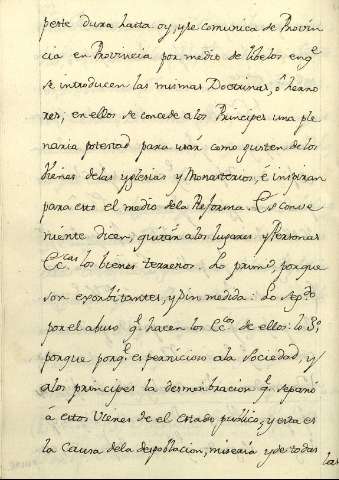 peste dura hasta oy, y se comunica de Provin
cia en Provincia por medio de libelos en q.e
se introducen las mismas Doctrinas, ô herro
res; en ellos se concede a los Principes una ple
naria potestad para usar como gusten de los
bienes de las yglesias y Monasterios, è inspiran
para esto el medio de la Reforma. Es conve
niente dicen, quitar a los lugares y Personas
Ec.cas los bienes terrenos. Lo prim.o porque
son exorbitantes, y sin medida: Lo seg.do
por el abuso q.e hacen los Ec.cos de ellos: lo 3.o
porque es pernicioso a la Sociedad, y
a los principes la desmembracion q.e se
à estos vienes de el Estado publico, y esta es
la Causa de la despoblacion, miseria y de todas
las